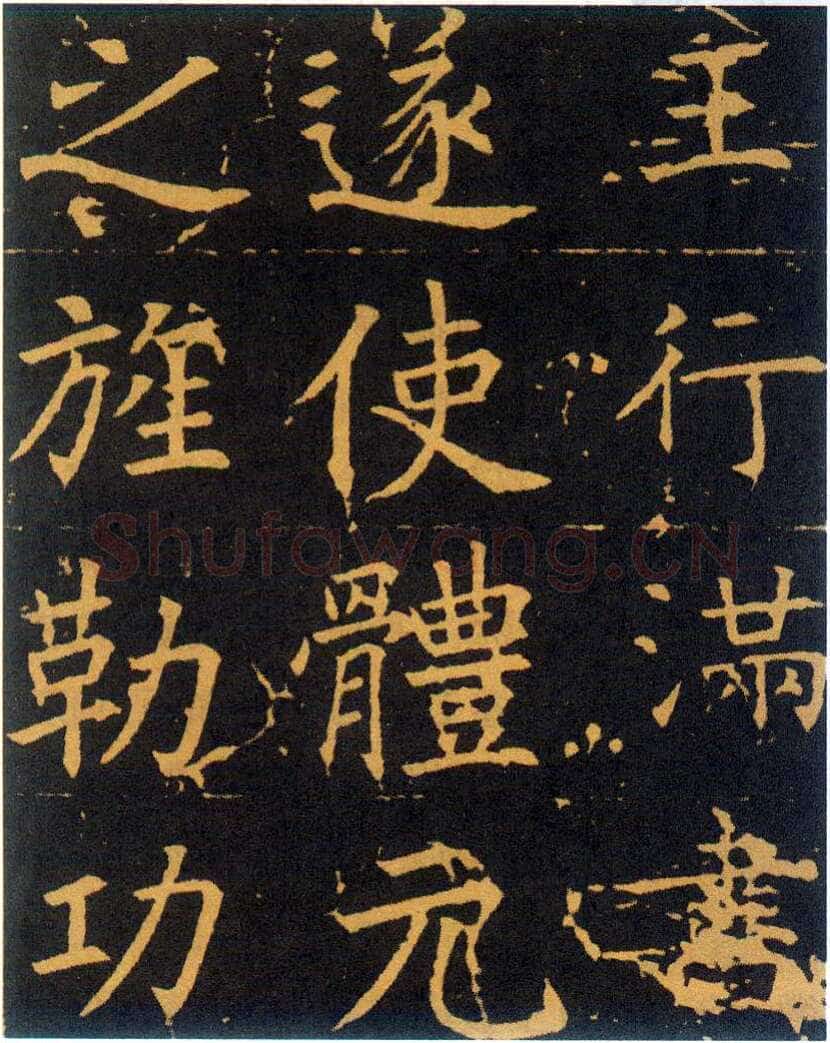 主行滿書
遂使體元
之旌勒功
Shufawang.CN